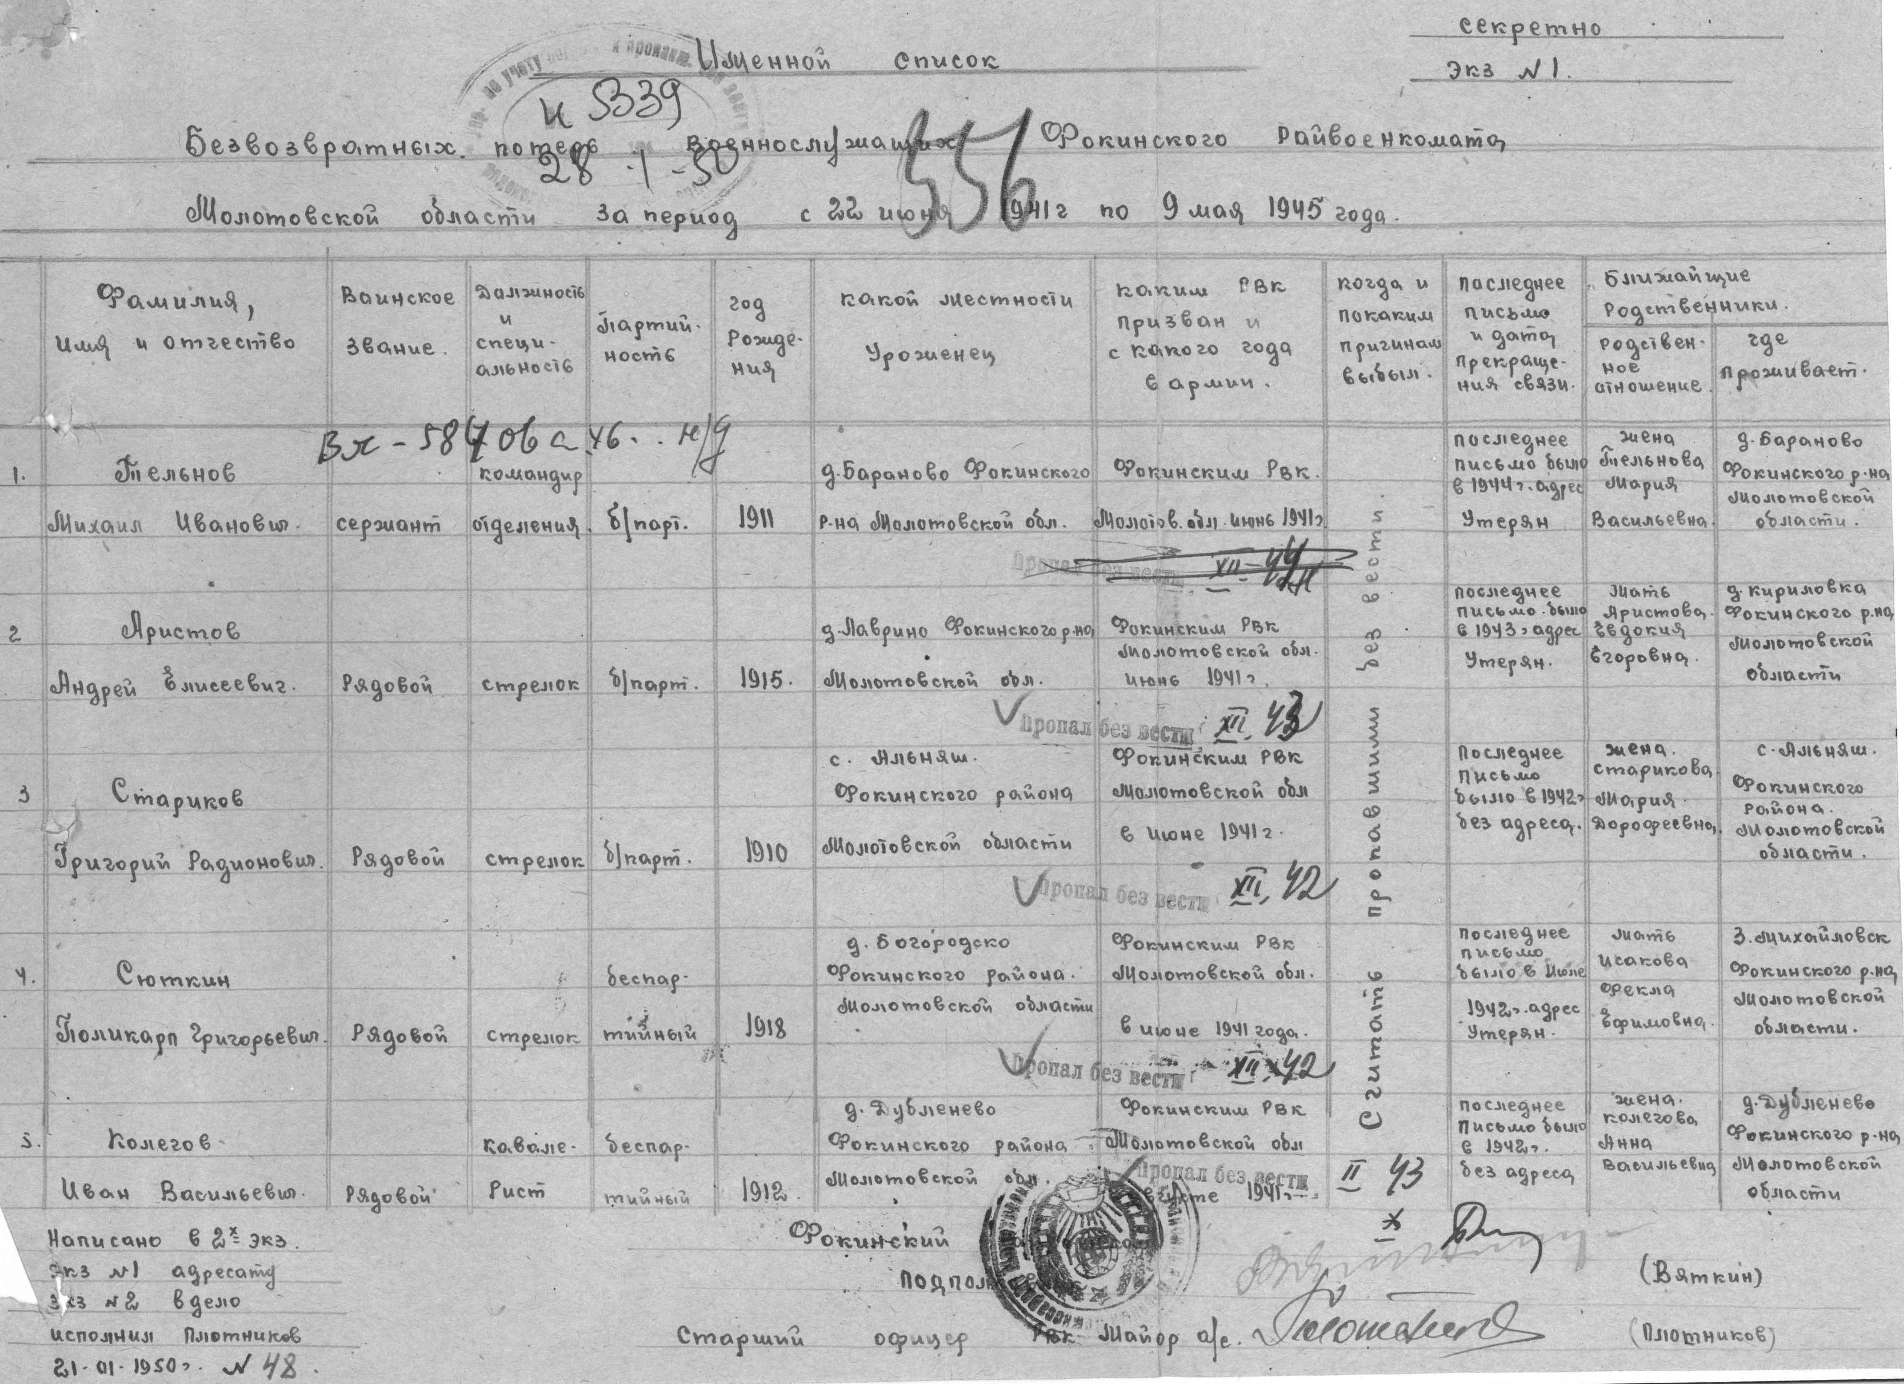 секретно
Экз №1.
Именной список
и 5339
28-1-50
556
Безвозвратных потерь военнослужащих Фокинского Райвоенкомата
Молотовской области за период с 22 июня 1941г по 9 мая 1945 года.
Фамилия,
имя и отчество
Воинское
звание.
Должность
и
специ-
альность
Партий-
ность
год
Рожде-
ния
какой местности
Уроженец
каким РВК
призван и
с какого года
в армии.
когда и
по каким
причинам
выбыл.
последнее
письмо
и дата
прекраще-
ния связи.
Ближайшие
Родственники.
Родствен-
ное
отношение.
где
проживает.
1.
Тельнов
Михаил Иванович.
сержант
командир
отделения.
б/парт.
1911
д.Бараново Фокинского
р-на Молотовской обл.
Фокинским РВК.
Молотов. обл. июнь 1941г
последнее
письмо было
в 1944г. адрес
Утерян
жена
Тельнова
Мария
Васильевна.
д. Бараново
Фокинского р-на
Молотовской
области.
Пропал без вести XII-44
2
Аристов
Андрей Елисеевич.
Рядовой
стрелок
б/парт.
1915.
д.Лаврино Фокинского р.на
Молотовской обл.
Фокинским РВК
Молотовской обл.
июнь 1941г.
последнее
письмо было
в 1943г адрес
Утерян.
Мать
Аристова.
Евдокия
Егоровна.
д. кириловка
Фокинского р.на
Молотовской
области
Пропал без вести XII. 43
3
Стариков
Григорий Радионович.
Рядовой
стрелок
б/парт.
1910
с. Альняш.
Фокинского района
Молотовской области
Фокинским РВК
Молотовской обл
в июне 1941г.
последнее
письмо
было в 1942г
без адреса.
жена.
старикова
Мария.
Дорофеевна.
с. Альняш.
Фокинского
района.
Молотовской
области.
Пропал без вести XII. 42
4.
Сюткин
Поликарп Григорьевич.
Рядовой
стрелок
беспар-
тийный
1918
д. Богородско
Фокинского района.
Молотовской области
Фокинским РВК
Молотовской обл.
в июне 1941 года.
последнее
письмо
было в Июле
1942г. адрес
Утерян.
Мать
Исакова
Фекла
Ефимовна.
З. Михайловск
Фокинского р.на
Молотовской
области.
Пропал без вести XII. 42
5.
Колегов
Иван Васильевич.
Рядовой
кавале-
Рист
беспар-
тийный
1912.
д. Дубленево
Фокинского района
Молотовской обл.
Фокинским РВК
Молотовской обл
1941г
последнее
письмо было
в 1942г.
без адреса
жена.
колегова
Анна
Васильевна
д. Дубленево
Фокинского р-на
Молотовской
области
Пропал без вести II 43
Считать пропавшими без вести.
Написано в 2х экз.
Экз №1 адресату
экз №2 в дело
исполнил Плотников
21.01.1950г. № 48.
Фокинский
(Вяткин)
Старший офицер РВК Майор а/с.
(Плотников)